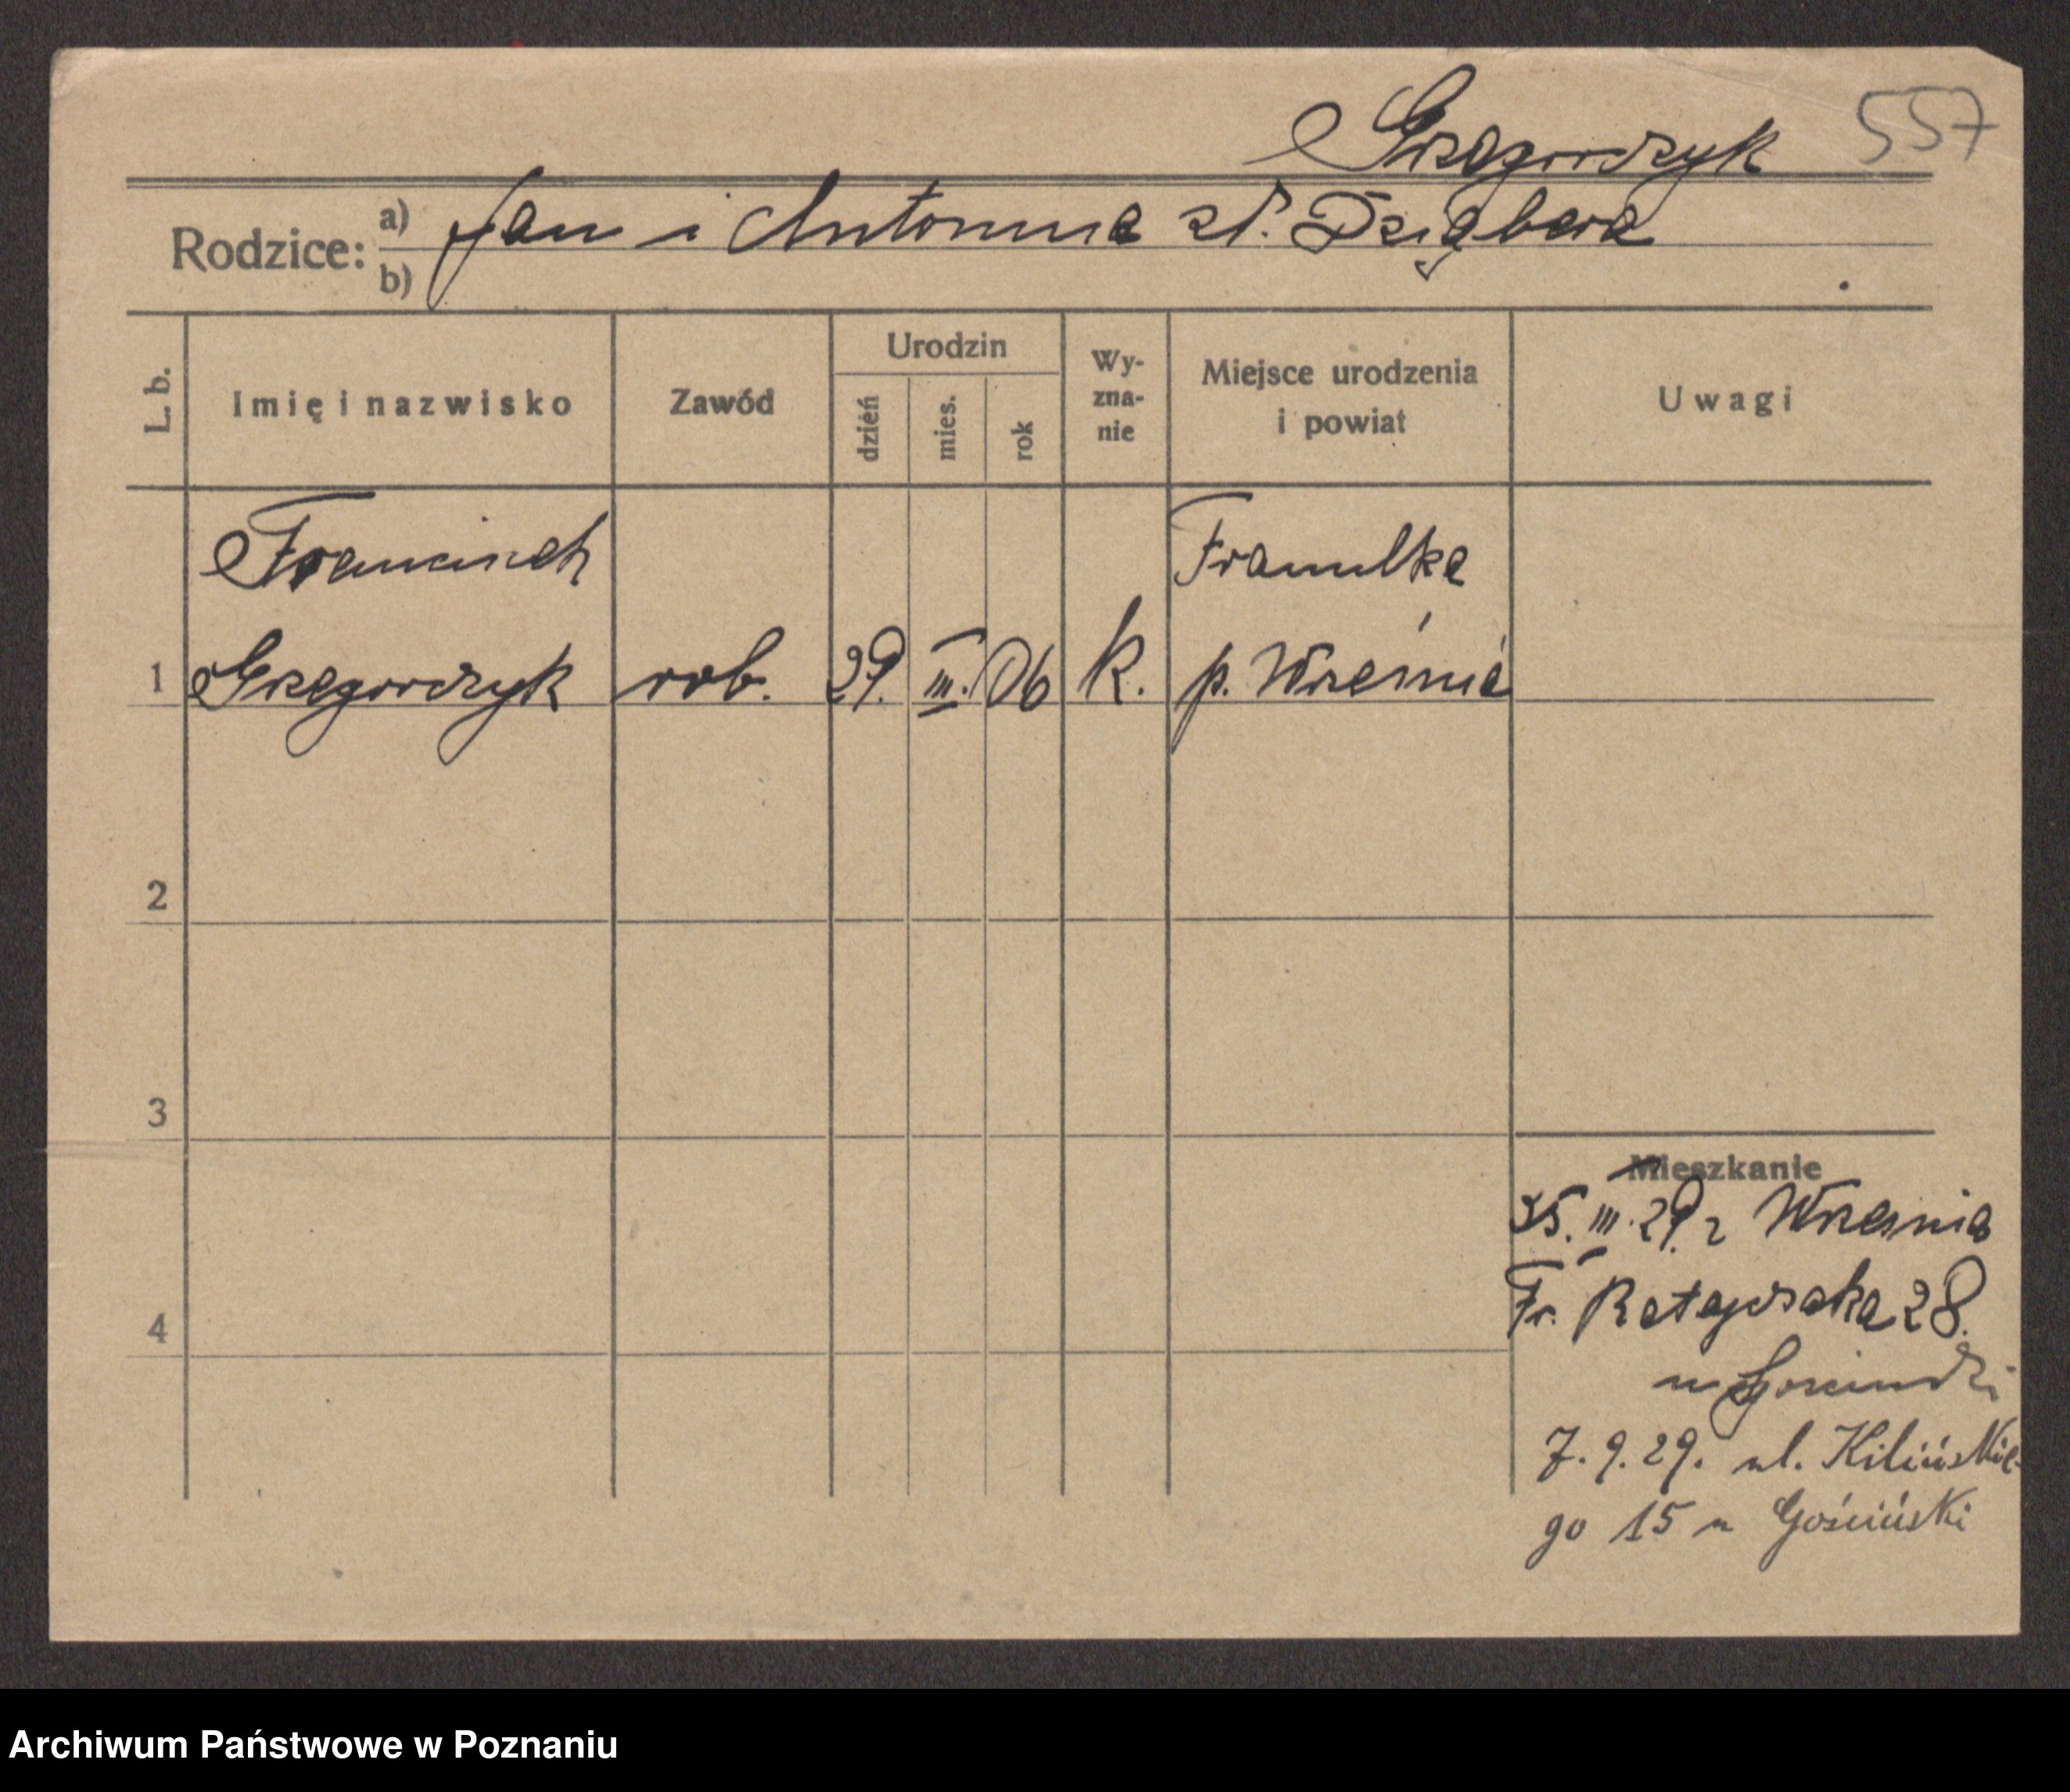 Grzegorczyk 557
Rodzice: a) Jan i Antonina
b)
L. b. Imię i nazwisko Zawód Urodzin dzień mies. rok Wy-zna-nie Miejsce urodzenia i powiat Uwagi
Franciszek Franulka
1 Grzegorczyk rob. 29. III. 06 k. p. Września
2
3
Mieszkanie
III. 29 z Września
4 Fr. Ratajczaka 28.
7. 9. 29. ul. Kilińskie-
go 15 u Gościński
Archiwum Państwowe w Poznaniu